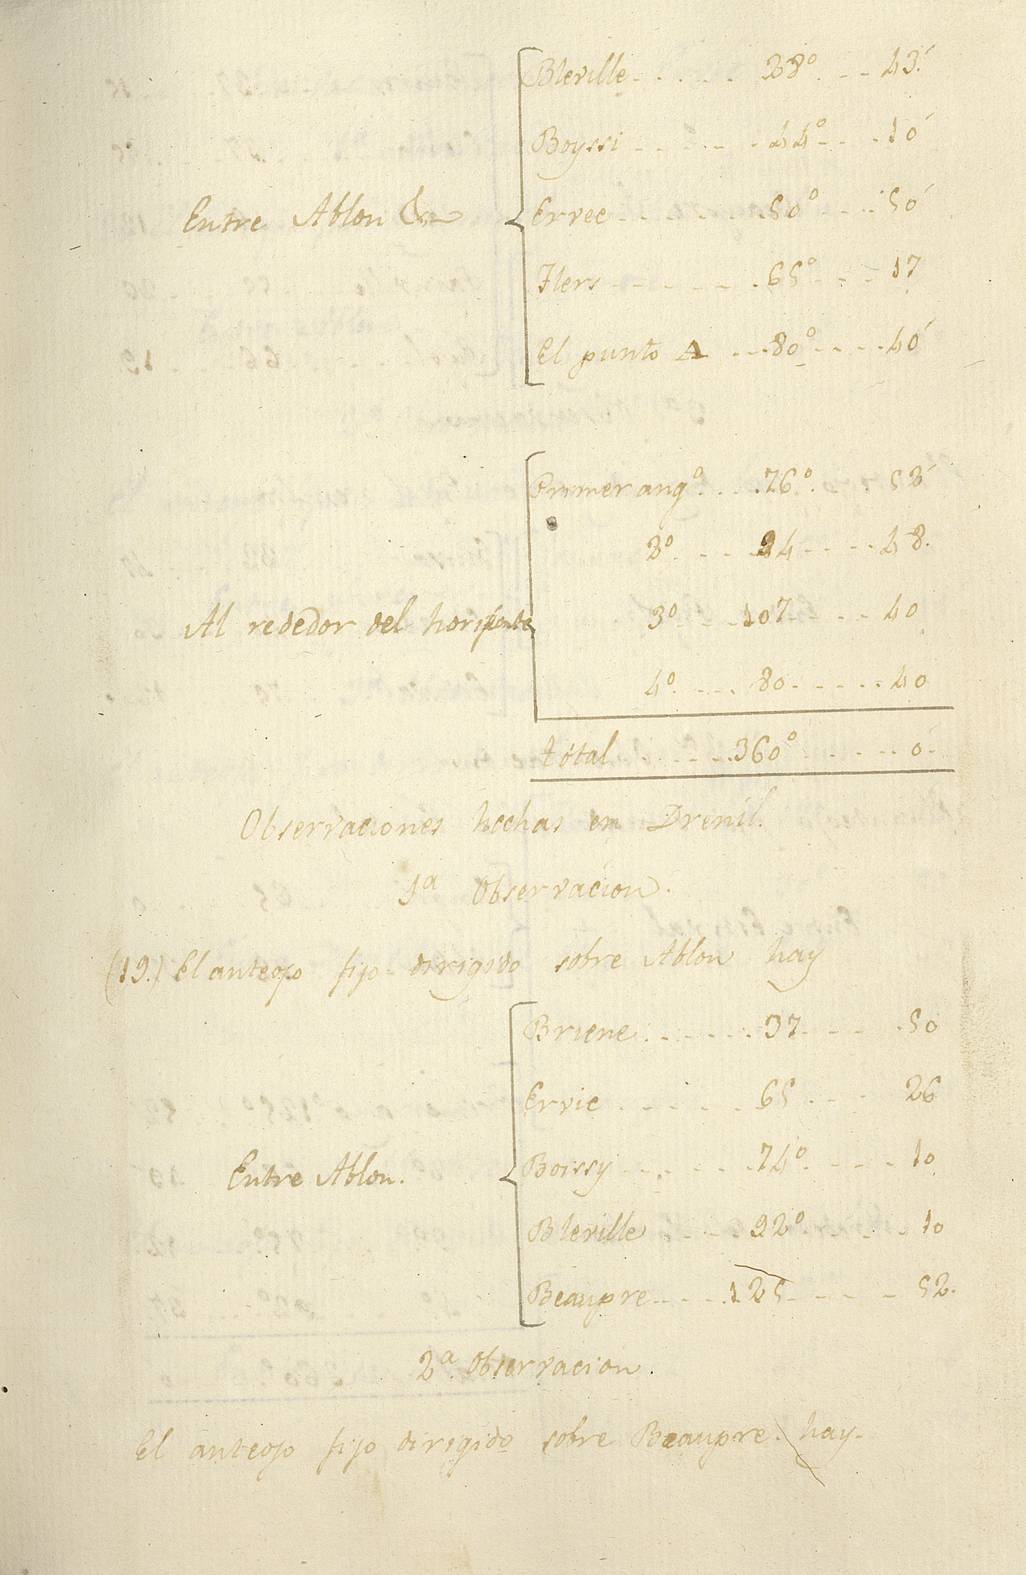 Bleville 28° 43'
Boyssi 44° 10'
Entre Ablon &
Ervec 50° 50'
Flers 65° 17
El punto A 80° 40'
Primer ang° 76° 52'
2° 94 48.
Al rededor del horizonte
3° 107 40
4° 80 40
total 360° 0
Observaciones hechas en Drenil.
1ª Observacion.
(19.) El anteojo fijo dirigido sobre Ablon hay
Briene 37 50
Ervic 65 26
Entre Ablon.
Boissy 74° 10
Bleville 92° 10
Beaupre 125 52.
2ª Observacion.
El anteojo fijo dirigido sobre Beaupre. hay